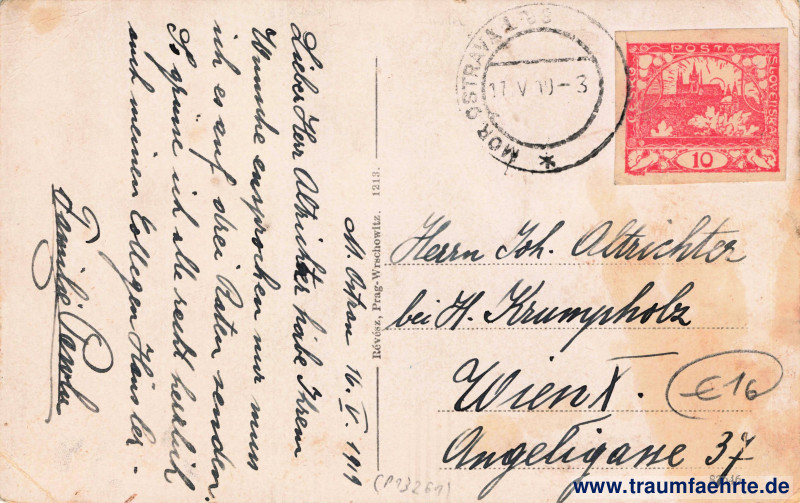 M. Ostrau 16. V. 1919
Lieber Herr Altrichter habe Ihrem
Wunsche ensprochen nur muss
ich es auf drei Raten senden.
Es grüsse ich alle recht herzlich
auch meinen Collegen Häusler.
Familie
Révész, Prag-Wrschowitz. 1213.
MOR. OSTRAVA 1
17. V 19-3
POSTA
SLOVENSKA
10
Herrn Joh. Altrichter
bei H. Krumpholz
Wien X.
Angeligasse 37
€16
(P13261)
www.traumfaehrte.de